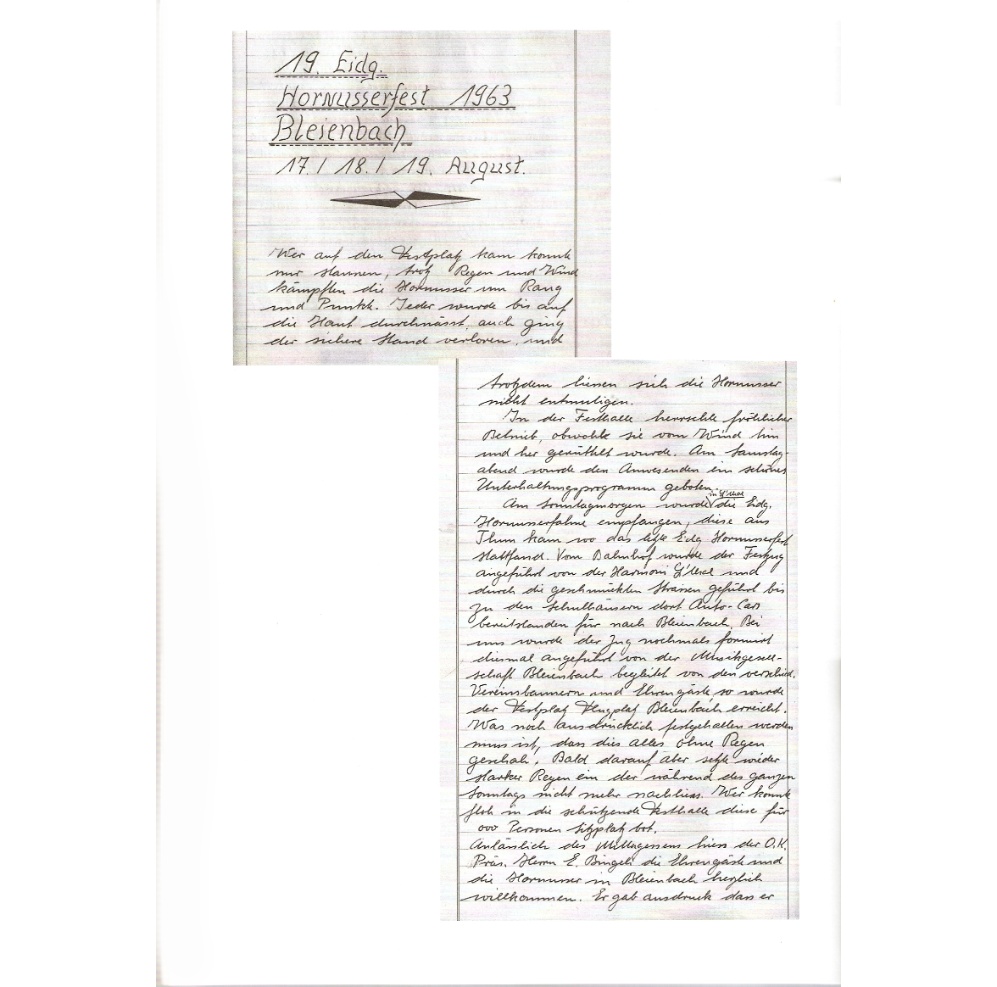 19. Eidg.
Hornusserfest 1963
Bleienbach
17./18./19. August.
Wer auf den Festplatz kam konnte
nur staunen, trotz Regen und Wind
kämpften die Hornusser um Rang
und Punkte. Jeder wurde bis auf
die Haut durchnässt, auch ging
der sichere Stand verloren, und
trotzdem liessen sich die Hornusser
nicht entmutigen.
In der Festhalle herrschte fröhlicher
Betrieb, obwohl sie vom Wind hin
und her gerüttelt wurde. Am Samstag-
abend wurde den Anwesenden ein schönes
Unterhaltungsprogramm geboten.
Am Sonntagmorgen wurde die Eidg.
Hornusserfahne empfangen, diese aus
Thun kam wo das letzte Eidg. Hornusserfest
stattfand. Vom Bahnhof wurde der Festzug
angeführt von der Harmoni und
durch die geschmückten Strassen geführt bis
zu den Schulhäusern dort Auto-Cars
bereitstanden für nach Bleienbach. Bei
uns wurde der Zug nochmals formiert
diesmal angeführt von der Musikgesell-
schaft Bleienbach begleitet von den verschied.
Vereinsbannern und Ehrengäste so wurde
der Festplatz Flugplatz Bleienbach erreicht.
Was noch ausdrücklich festgehalten werden
muss ist, dass dies alles ohne Regen
geschah. Bald darauf aber setzte wieder
starker Regen ein der während des ganzen
Sonntags nicht mehr nachliess. Wer konnte
floh in die schützende Festhalle diese für
000 Personen Sitzplatz bot.
Anlässlich des Mittagessens hiess der O.K.
Präs. Herrn E. Bingeli die Ehrengäste und
die Hornusser in Bleienbach herzlich
willkommen. Er gab ausdruck dass er